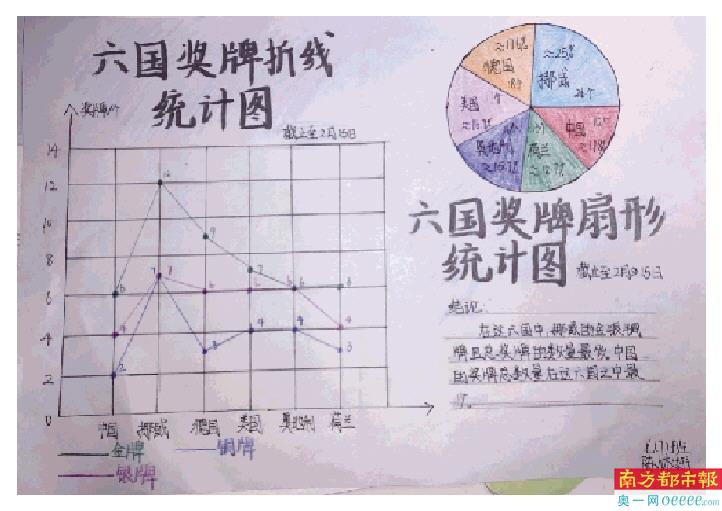 六国奖牌折线
统计图
截止至2月15日
奖牌/个
14
12
10
8
6
4
2
0
6 12 9 7 6 6
4 7 6 6 6 4
2 7 3 4 4 3
中国 挪威 德国 美国 奥地利 荷兰
金牌
铜牌
银牌
德国
≈25%
挪威
美国
中国
奥地利
荷兰
六国奖牌扇形
统计图 截止至2月15日
结论:
在这六国中,挪威的金银铜
牌且总奖牌的数量最多,中国
的奖牌总数量在这六国之中最
南方都市報
奥一网oeeee.com